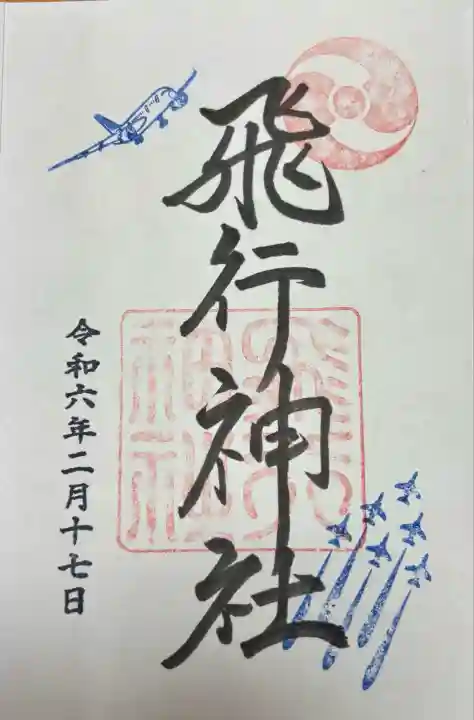 飛行神社
令和六年二月十七日
飛行神社